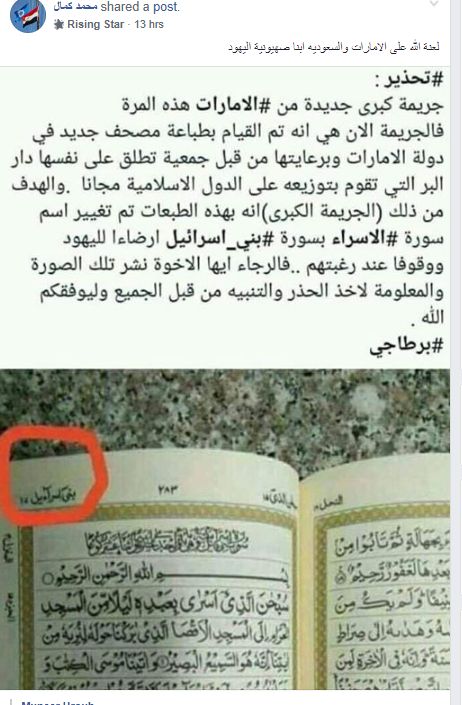 محمد كمال shared a post.
Rising Star · 13 hrs
لعنة الله على الامارات والسعوديه ابنا صهيونية اليهود
#تحذير :
جريمة كبرى جديدة من #الامارات هذه المرة
فالجريمة الان هي انه تم القيام بطباعة مصحف جديد في
دولة الامارات وبرعايتها من قبل جمعية تطلق على نفسها دار
البر التي تقوم بتوزيعه على الدول الاسلامية مجانا .والهدف
من ذلك (الجريمة الكبرى)انه بهذه الطبعات تم تغيير اسم
سورة #الاسراء بسورة #بني_اسرائيل ارضاءا لليهود
ووقوفا عند رغبتهم ..فالرجاء ايها الاخوة نشر تلك الصورة
والمعلومة لاخذ الحذر والتنبيه من قبل الجميع وليوفقكم
الله .
#برطاجي
النحل ١٦
سبحن الذي ١٥
٢٨٣
بني اسراءيل ١٧
بجهالة ثم تابوا من
بعدها لغفور رحيم
حنيفا ولم يك من
وهديه الى صراط
وانه في الاخرة لمن
بسم الله الرحمن الرحيم
سبحن الذي اسرى بعبده ليلا من المسجد
الحرام الى المسجد الاقصا الذي بركنا حوله لنريه من
ايتنا انه هو السميع البصير واتينا موسى الكتب و